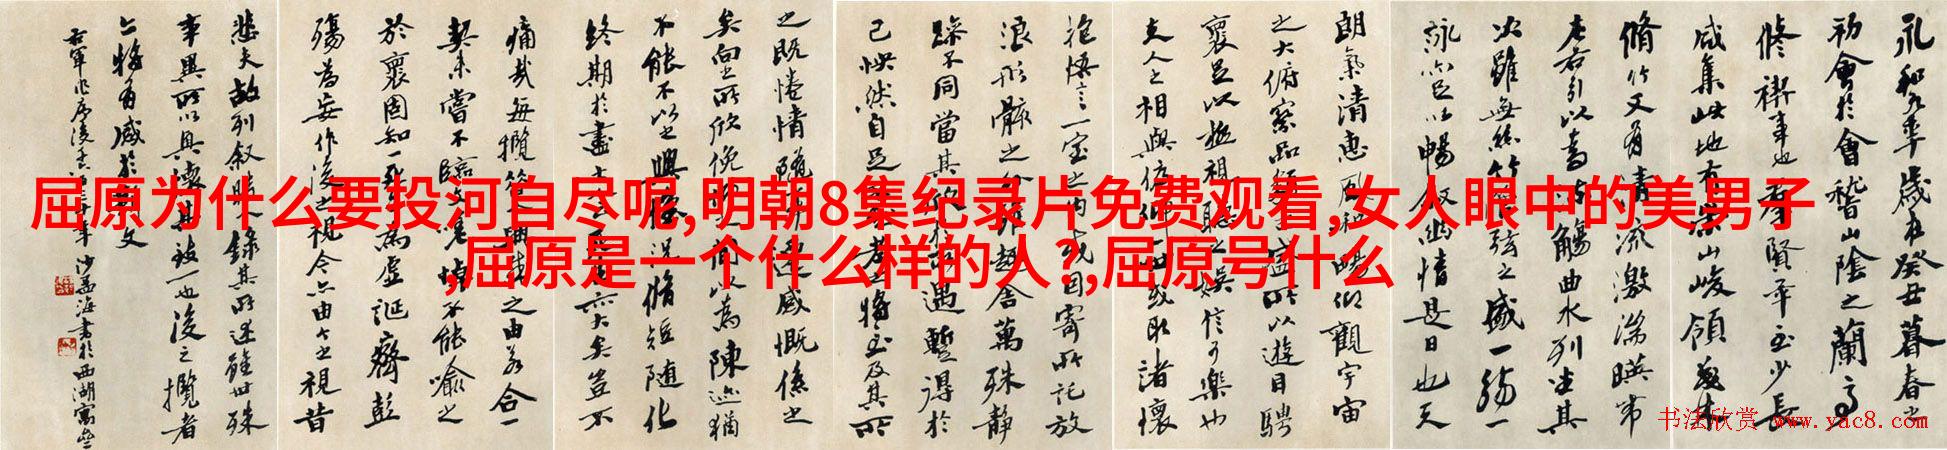 屈原为什么要投河自尽呢,明朝8集纪录片免费观看,女人眼中的美男子
,屈原是一个什么样的人?,屈原号什么
永和九年歲在癸丑暮春之
初會於會稽山陰之蘭亭
修禊事也群賢畢至少長
咸集此地有崇山峻領茂林
脩竹又有清流激湍暎帶
左右引以為流觴曲水列坐其
次雖無絲竹管弦之盛一觴一
詠亦足以暢敘幽情是日也天
朗氣清惠風和暢仰觀宇宙
之大俯察品類之盛所以遊目騁
懷足以極視聽之娛信可樂也
夫人之相與俯仰一世或取諸懷
抱悟言一室之內或因寄所託放
浪形骸之外雖趣舍萬殊靜
躁不同當其欣於所遇暫得於
己怏然自足不知老之將至及其所
之既惓情隨事遷感慨係之
矣向之所欣俛仰之間以為陳迹猶
不能不以之興懷況脩短隨化
終期於盡古人云死生亦大矣豈不
痛哉每攬昔人興感之由若合一
契未嘗不臨文嗟悼不能喻之
於懷固知一死生為虛誕齊彭
殤為妄作後之視今亦由今之視昔
悲夫故列敘時人錄其所述雖世殊
事異所以興懷其致一也後之攬者
亦將有感於斯文
右軍作序後 年沙孟海書於西湖寓舍
书法欣赏 www.yac8.com